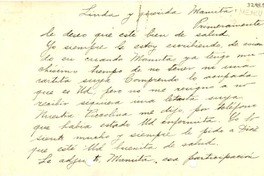 Linda y querida Mamita:
Primeramente
le deseo que esté bien de salud
Yo siempre le estoy escribiendo, de cuan
do en cuando Mamita ya tengo mu
chísimo tiempo de no tener ni una
cartita suya Comprendo lo ocupada
que es Ud. pero yo me resigno a no
recibir siquiera una letrita suya
Nuestra me dijo por teléfono
que había estado Ud enfermita. Yo lo
siento mucho y siempre le pido a Dios
que esté Ud buenita de salud
Le adjunto Mamita, esa participación